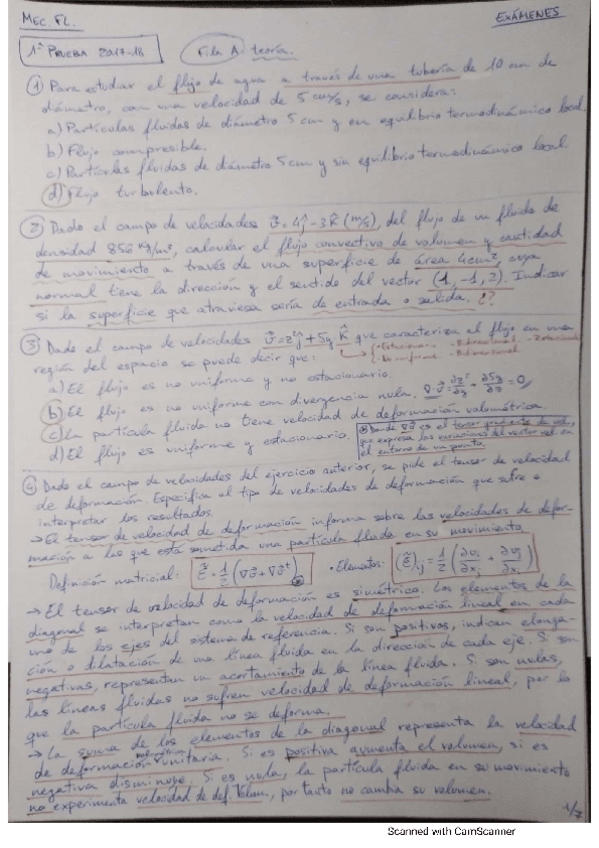 MEC. FL. EXÁMENES
1ª PRUEBA 2017-18 Fila A teoría.
① Para estudiar el flujo de agua a través de una tubería de 10 cm de
diámetro, con una velocidad de 5 cm/s, se considera:
a) Partículas fluidas de diámetro 5 cm y en equilibrio termodinámico local.
b) Flujo compresible.
c) Partículas fluidas de diámetro 5 cm y sin equilibrio termodinámico local.
d) Flujo turbulento.
② Dado el campo de velocidades v⃗ = 4ĵ - 3k̂ (m/s), del flujo de un fluido de
densidad 856 kg/m³, calcular el flujo convectivo de volumen y cantidad
de movimiento a través de una superficie de área 4cm², cuya
normal tiene la dirección y el sentido del vector (1, -1, 2). Indicar
si la superficie que atraviesa sería de entrada o salida. ¿?
③ Dado el campo de velocidades v⃗ = zĵ + 5y k̂ que caracteriza el flujo en una
región del espacio se puede decir que:
- Estacionario - Bidireccional
- No uniforme - Bidimensional
a) El flujo es no uniforme y no estacionario.
b) El flujo es no uniforme con divergencia nula.
c) La partícula fluida no tiene velocidad de deformación volumétrica.
d) El flujo es uniforme y estacionario.
Donde ∇v⃗ es el tensor gradiente de vel.,
que expresa las variaciones del vector vel. en
el entorno de un punto.
④ Dado el campo de velocidades del ejercicio anterior, se pide el tensor de velocidad
de deformación. Especifica el tipo de velocidades de deformación que sufre e
interpretar los resultados.
→ El tensor de velocidad de deformación informa sobre las velocidades de defor-
mación a las que está sometida una partícula fluida en su movimiento.
Definición matricial: ε = 1/2 (∇v⃗ + ∇v⃗ᵗ) • Elementos: (ε)ij = 1/2 (∂vi/∂xj + ∂vj/∂xi)
→ El tensor de velocidad de deformación es simétrico. Los elementos de la
diagonal se interpretan como la velocidad de deformación lineal en cada
uno de los ejes del sistema de referencia. Si son positivos, indican elonga-
ción o dilatación de una línea fluida en la dirección de cada eje. Si son
negativas, representan un acortamiento de la línea fluida. Si son nulas,
las líneas fluidas no sufren velocidad de deformación lineal, por lo
que la partícula fluida no se deforma.
→ La suma de los elementos de la diagonal representa la velocidad
de deformación volumétrica unitaria. Si es positiva aumenta el volumen, si es
negativa disminuye. Si es nula, la partícula fluida en su movimiento
no experimenta velocidad de def. Volum., por tanto no cambia su volumen.
1/7
Scanned with CamScanner